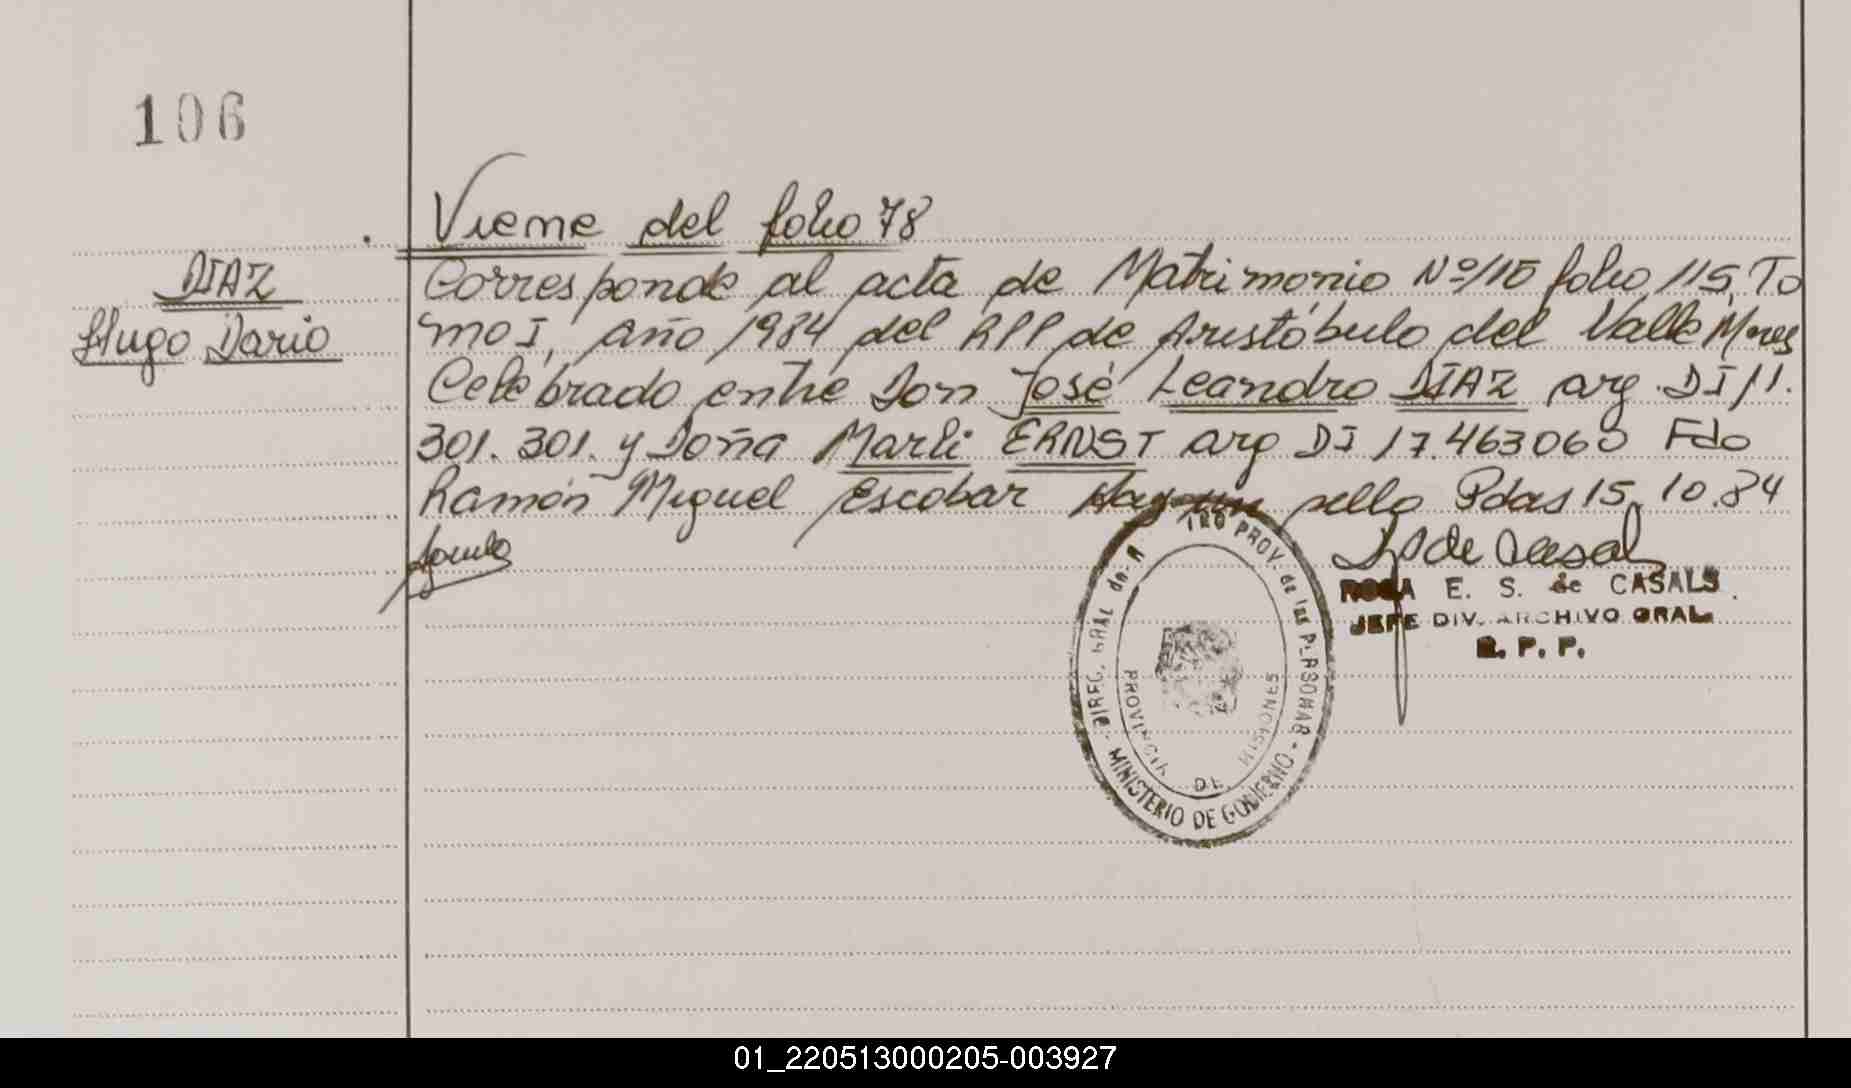 106
Viene del folio 78
DIAZ
Hugo Dario
Corresponde al acta de Matrimonio Nº 115 folio 115, To
mo I, año 1984 del RPP de Aristóbulo del Valle Mnes
Celebrado entre Don José Leandro DIAZ arg. DI 11.
301.301. y Doña Marli ERNST arg DI 17.463060 Fdo
Ramón Miguel Escobar Hay un sello Pdas 15.10.84
ROSA E. S. de CASALS
JEFE DIV. ARCHIVO GRAL.
R. P. P.
DIREC. GRAL de PROV. de las PERSONAS - MINISTERIO DE GOBIERNO -
PROVINCIA DE MISIONES
01_220513000205-003927